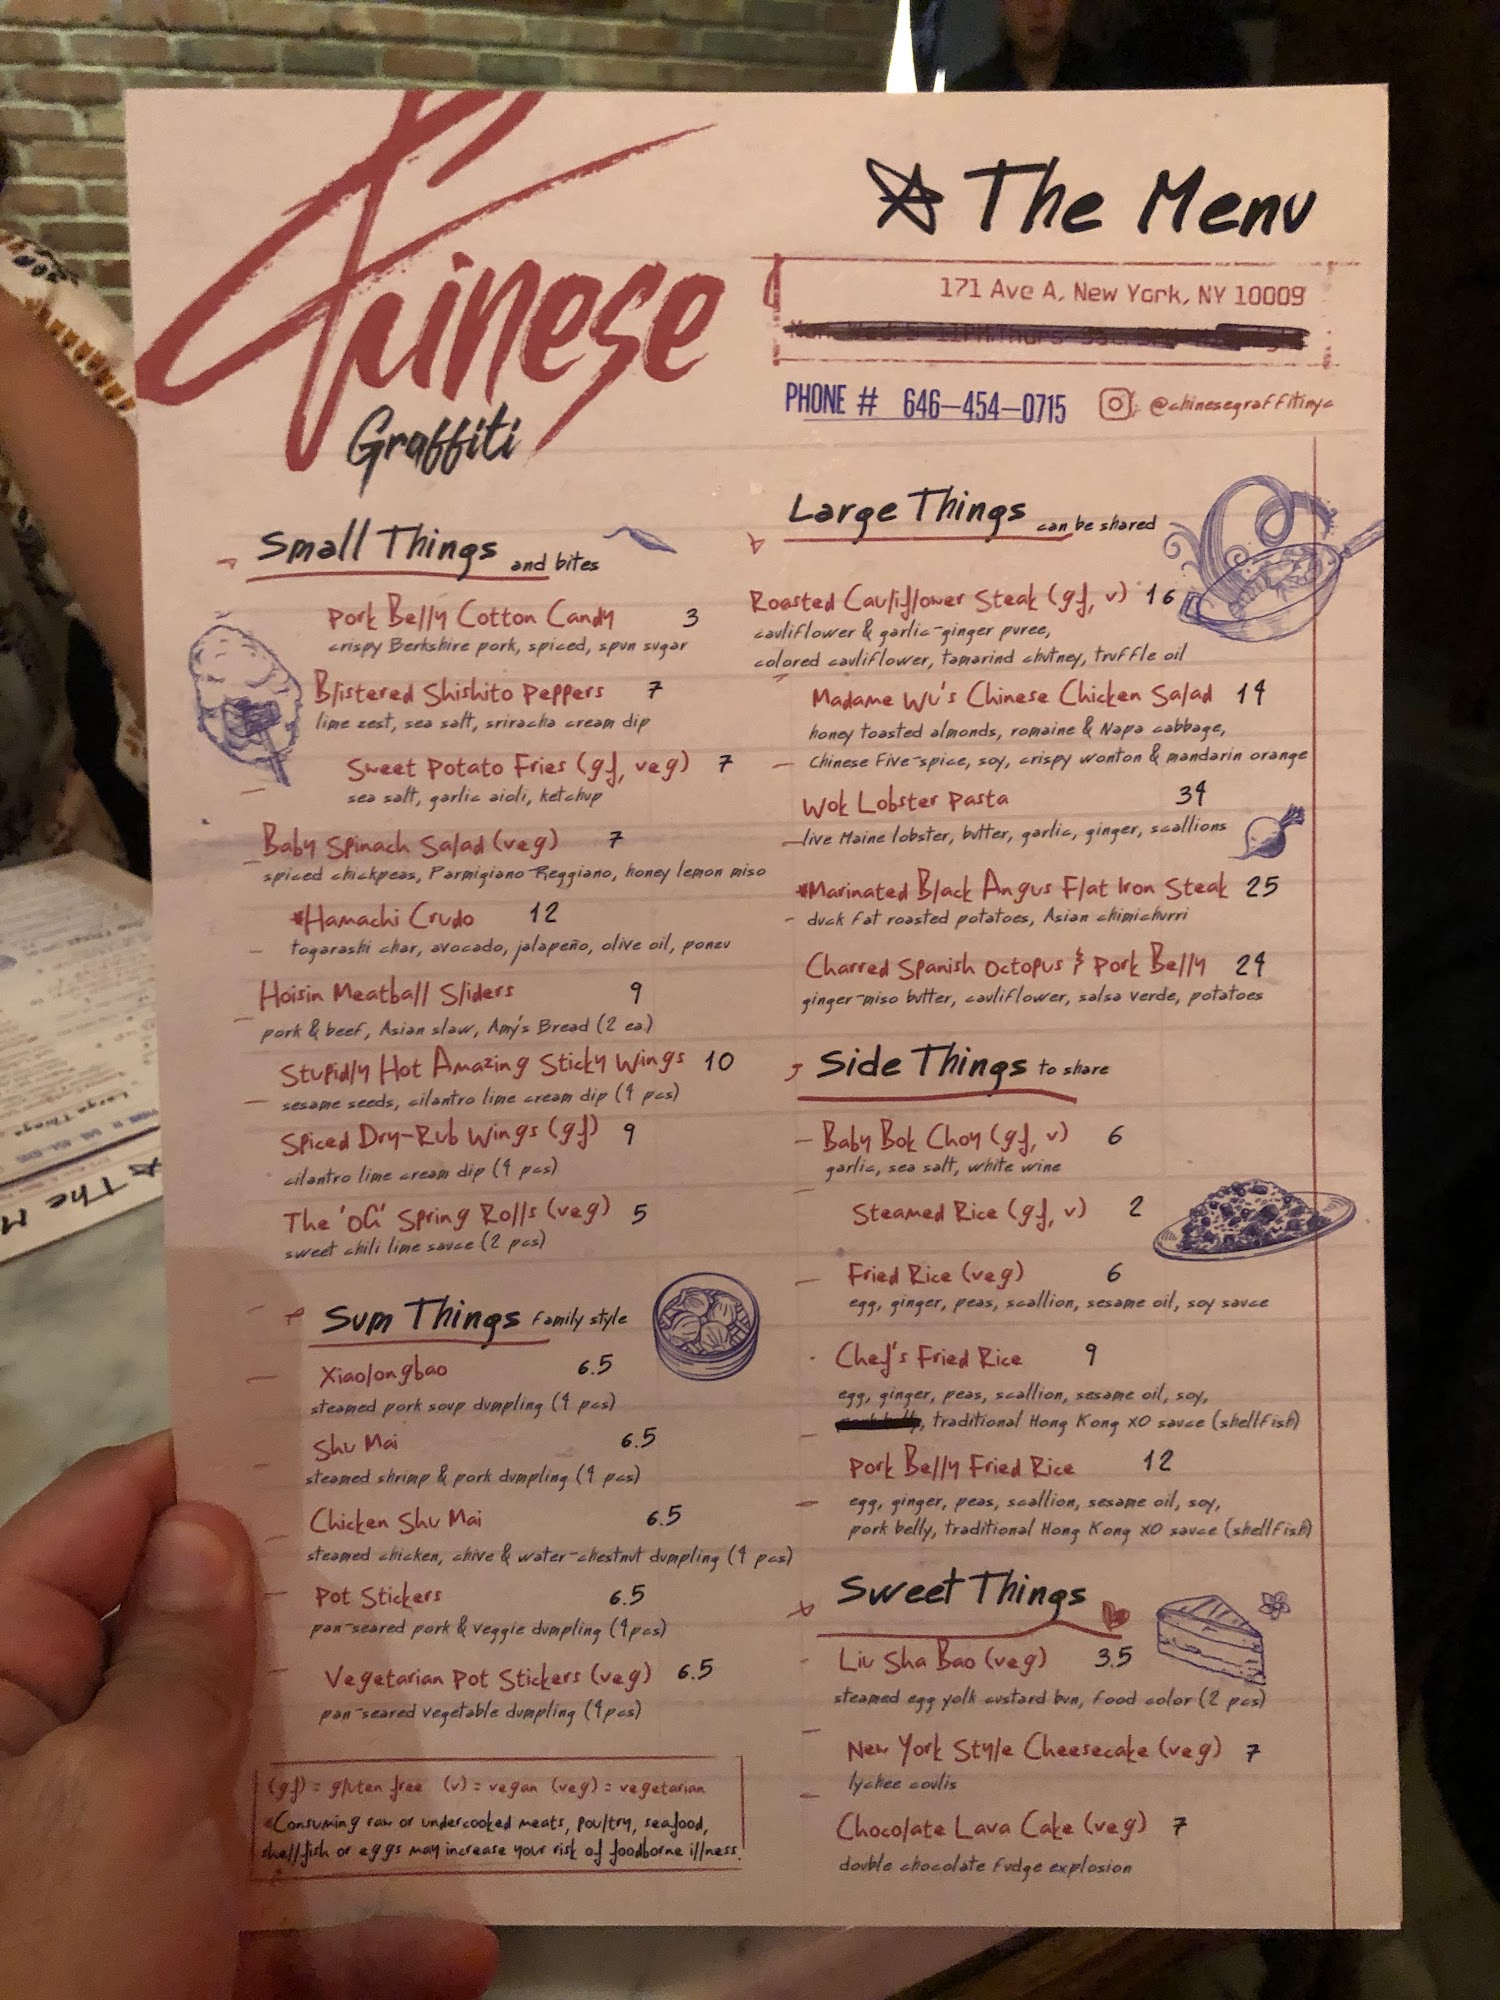 Chinese
Graffiti
The Menu
171 Ave A, New York, NY 10009
PHONE # 646-454-0715 @chinesegraffitinyc
Small Things and bites
Pork Belly Cotton Candy 3
crispy Berkshire pork, spiced, spun sugar
Blistered Shishito Peppers 7
lime zest, sea salt, sriracha cream dip
Sweet Potato Fries (gf, veg) 7
sea salt, garlic aioli, ketchup
Baby Spinach Salad (veg) 7
spiced chickpeas, Parmigiano-Reggiano, honey lemon miso
*Hamachi Crudo 12
togarashi char, avocado, jalapeño, olive oil, ponzu
Hoisin Meatball Sliders 9
pork & beef, Asian slaw, Amy's Bread (2 ea.)
Stupidly Hot Amazing Sticky Wings 10
sesame seeds, cilantro lime cream dip (4 pcs)
Spiced Dry-Rub Wings (gf) 9
cilantro lime cream dip (4 pcs)
The 'OG' Spring Rolls (veg) 5
sweet chili lime sauce (2 pcs)
Sum Things family style
Xiaolongbao 6.5
steamed pork soup dumpling (4 pcs)
Shu Mai 6.5
steamed shrimp & pork dumpling (4 pcs)
Chicken Shu Mai 6.5
steamed chicken, chive & water-chestnut dumpling (4 pcs)
Pot Stickers 6.5
pan-seared pork & veggie dumpling (4pcs)
Vegetarian Pot Stickers (veg) 6.5
pan-seared vegetable dumpling (4pcs)
(gf) = gluten free (v) = vegan (veg) = vegetarian
*Consuming raw or undercooked meats, poultry, seafood,
shellfish or eggs may increase your risk of foodborne illness.
Large Things can be shared
Roasted Cauliflower Steak (gf, v) 16
cauliflower & garlic-ginger puree,
colored cauliflower, tamarind chutney, truffle oil
Madame Wu's Chinese Chicken Salad 14
honey toasted almonds, romaine & Napa cabbage,
Chinese Five-spice, soy, crispy wonton & mandarin orange
Wok Lobster Pasta 34
live Maine lobster, butter, garlic, ginger, scallions
*Marinated Black Angus Flat Iron Steak 25
duck fat roasted potatoes, Asian chimichurri
Charred Spanish Octopus & Pork Belly 24
ginger-miso butter, cauliflower, salsa verde, potatoes
Side Things to share
Baby Bok Choy (gf, v) 6
garlic, sea salt, white wine
Steamed Rice (gf, v) 2
Fried Rice (veg) 6
egg, ginger, peas, scallion, sesame oil, soy sauce
Chef's Fried Rice 9
egg, ginger, peas, scallion, sesame oil, soy,
, traditional Hong Kong XO sauce (shellfish)
Pork Belly Fried Rice 12
egg, ginger, peas, scallion, sesame oil, soy,
pork belly, traditional Hong Kong XO sauce (shellfish)
Sweet Things
Liu Sha Bao (veg) 3.5
steamed egg yolk custard bun, food color (2 pcs)
New York Style Cheesecake (veg) 7
lychee coulis
Chocolate Lava Cake (veg) 7
double chocolate fudge explosion